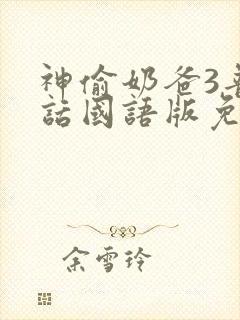 神偷奶爸3
話國語版免
余雪玲